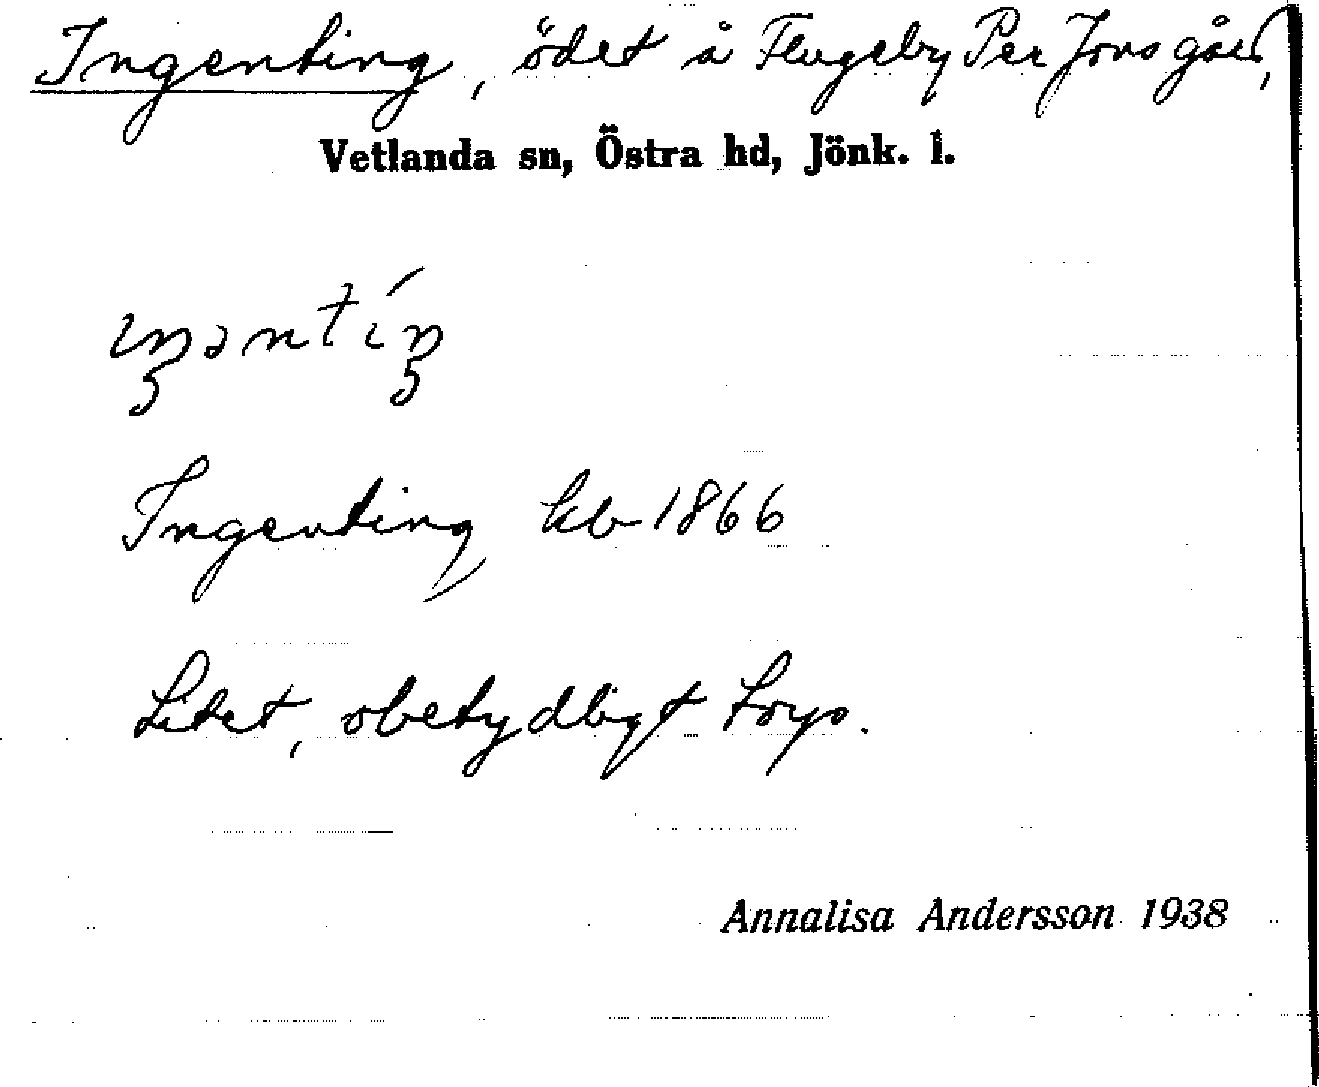 Ingenting, ödet å Flugeby Per Jons gård,
Vetlanda sn, Östra hd, Jönk. l.
iŋəntíŋ
Ingenting kb 1866
Litet, obetydligt torp.
Annalisa Andersson 1938